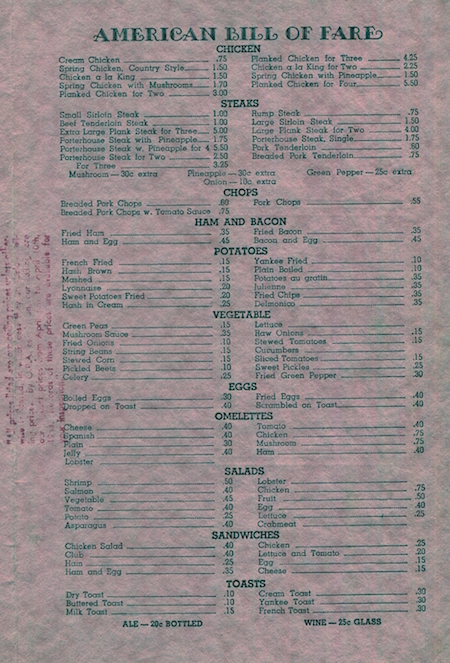 AMERICAN BILL OF FARE
CHICKEN
Cream Chicken .75
Spring Chicken, Country Style 1.50
Chicken a la King 1.50
Spring Chicken with Mushrooms 1.70
Planked Chicken for Two 3.00
Planked Chicken for Three 4.25
Chicken a la King for Two 2.25
Spring Chicken with Pineapple 1.50
Planked Chicken for Four 5.50
STEAKS
Small Sirloin Steak 1.00
Beef Tenderloin Steak 1.00
Extra Large Plank Steak for Three 5.00
Porterhouse Steak with Pineapple 1.75
Porterhouse Steak w. Pineapple for 4 5.50
Porterhouse Steak for Two 2.50
For Three 3.25
Rump Steak .75
Large Sirloin Steak 1.50
Large Plank Steak for Two 4.00
Porterhouse Steak, Single 1.75
Pork Tenderloin .60
Breaded Pork Tenderloin .75
Mushroom — 30c extra Pineapple — 30c extra Green Pepper — 25c extra
Onion — 10c extra
CHOPS
Breaded Pork Chops .60
Breaded Pork Chops w. Tomato Sauce .75
Pork Chops .55
HAM AND BACON
Fried Ham .35
Ham and Egg .45
Fried Bacon .35
Bacon and Egg .45
POTATOES
French Fried .15
Hash Brown .15
Mashed .15
Lyonnaise .20
Sweet Potatoes Fried .20
Hash in Cream .25
Yankee Fried .10
Plain Boiled .10
Potatoes au gratin .35
Julienne .35
Fried Chips .35
Delmonico .35
VEGETABLE
Green Peas .15
Mushroom Sauce .35
Fried Onions .10
String Beans .15
Stewed Corn .15
Pickled Beets .10
Celery .25
Lettuce
Raw Onions .15
Stewed Tomatoes .15
Cucumbers
Sliced Tomatoes .15
Sweet Pickles .25
Fried Green Pepper .30
EGGS
Boiled Eggs .30
Dropped on Toast .40
Fried Eggs .40
Scrambled on Toast .40
OMELETTES
Cheese .40
Spanish .40
Plain .30
Jelly .40
Lobster
Tomato .40
Chicken .75
Mushroom .75
Ham .40
SALADS
Shrimp .50
Salmon .40
Vegetable .45
Tomato .40
Potato .25
Asparagus .40
Lobster
Chicken .75
Fruit .50
Egg .40
Lettuce .25
Crabmeat
SANDWICHES
Chicken Salad .40
Club .40
Ham .25
Ham and Egg .35
Chicken .25
Lettuce and Tomato .20
Egg .15
Cheese .15
TOASTS
Dry Toast .10
Buttered Toast .10
Milk Toast .15
Cream Toast .30
Yankee Toast .30
French Toast .30
ALE — 20c BOTTLED WINE — 25c GLASS